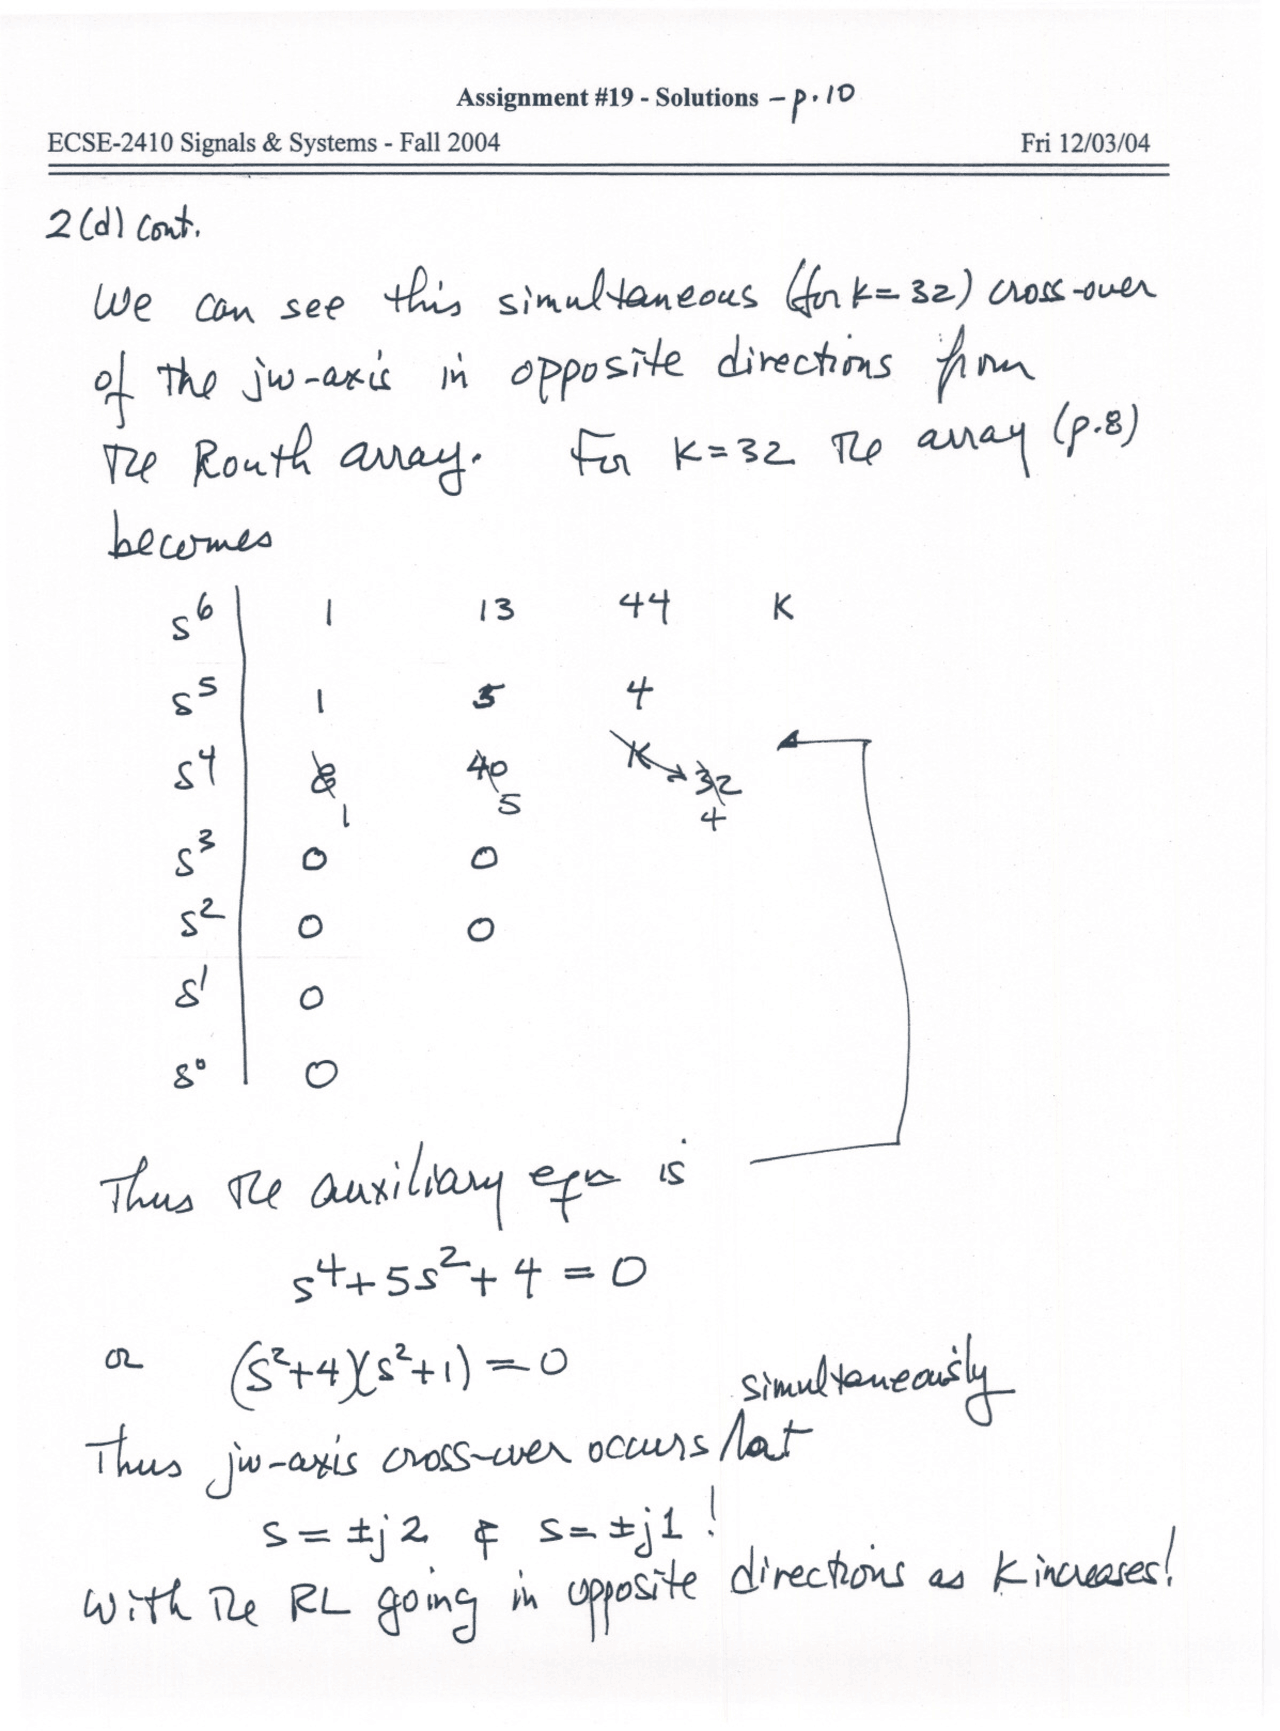 Assignment #19 - Solutions - p.10
ECSE-2410 Signals & Systems - Fall 2004 Fri 12/03/04
2(d) cont.
We can see this simultaneous (for K=32) cross-over
of the jw-axis in opposite directions from
the Routh array. For K=32 the array (p.8)
becomes
s⁶ 1 13 44 K
s⁵ 1 5 4
s⁴ 8 40 K → 32
1 5 4
s³ 0 0
s² 0 0
s¹ 0
s⁰ 0
Thus the auxiliary eqn is
s⁴+5s²+4=0
or (s²+4)(s²+1)=0
simultaneously
Thus jw-axis cross-over occurs at
s=±j2 & s=±j1!
with the RL going in opposite directions as K increases!